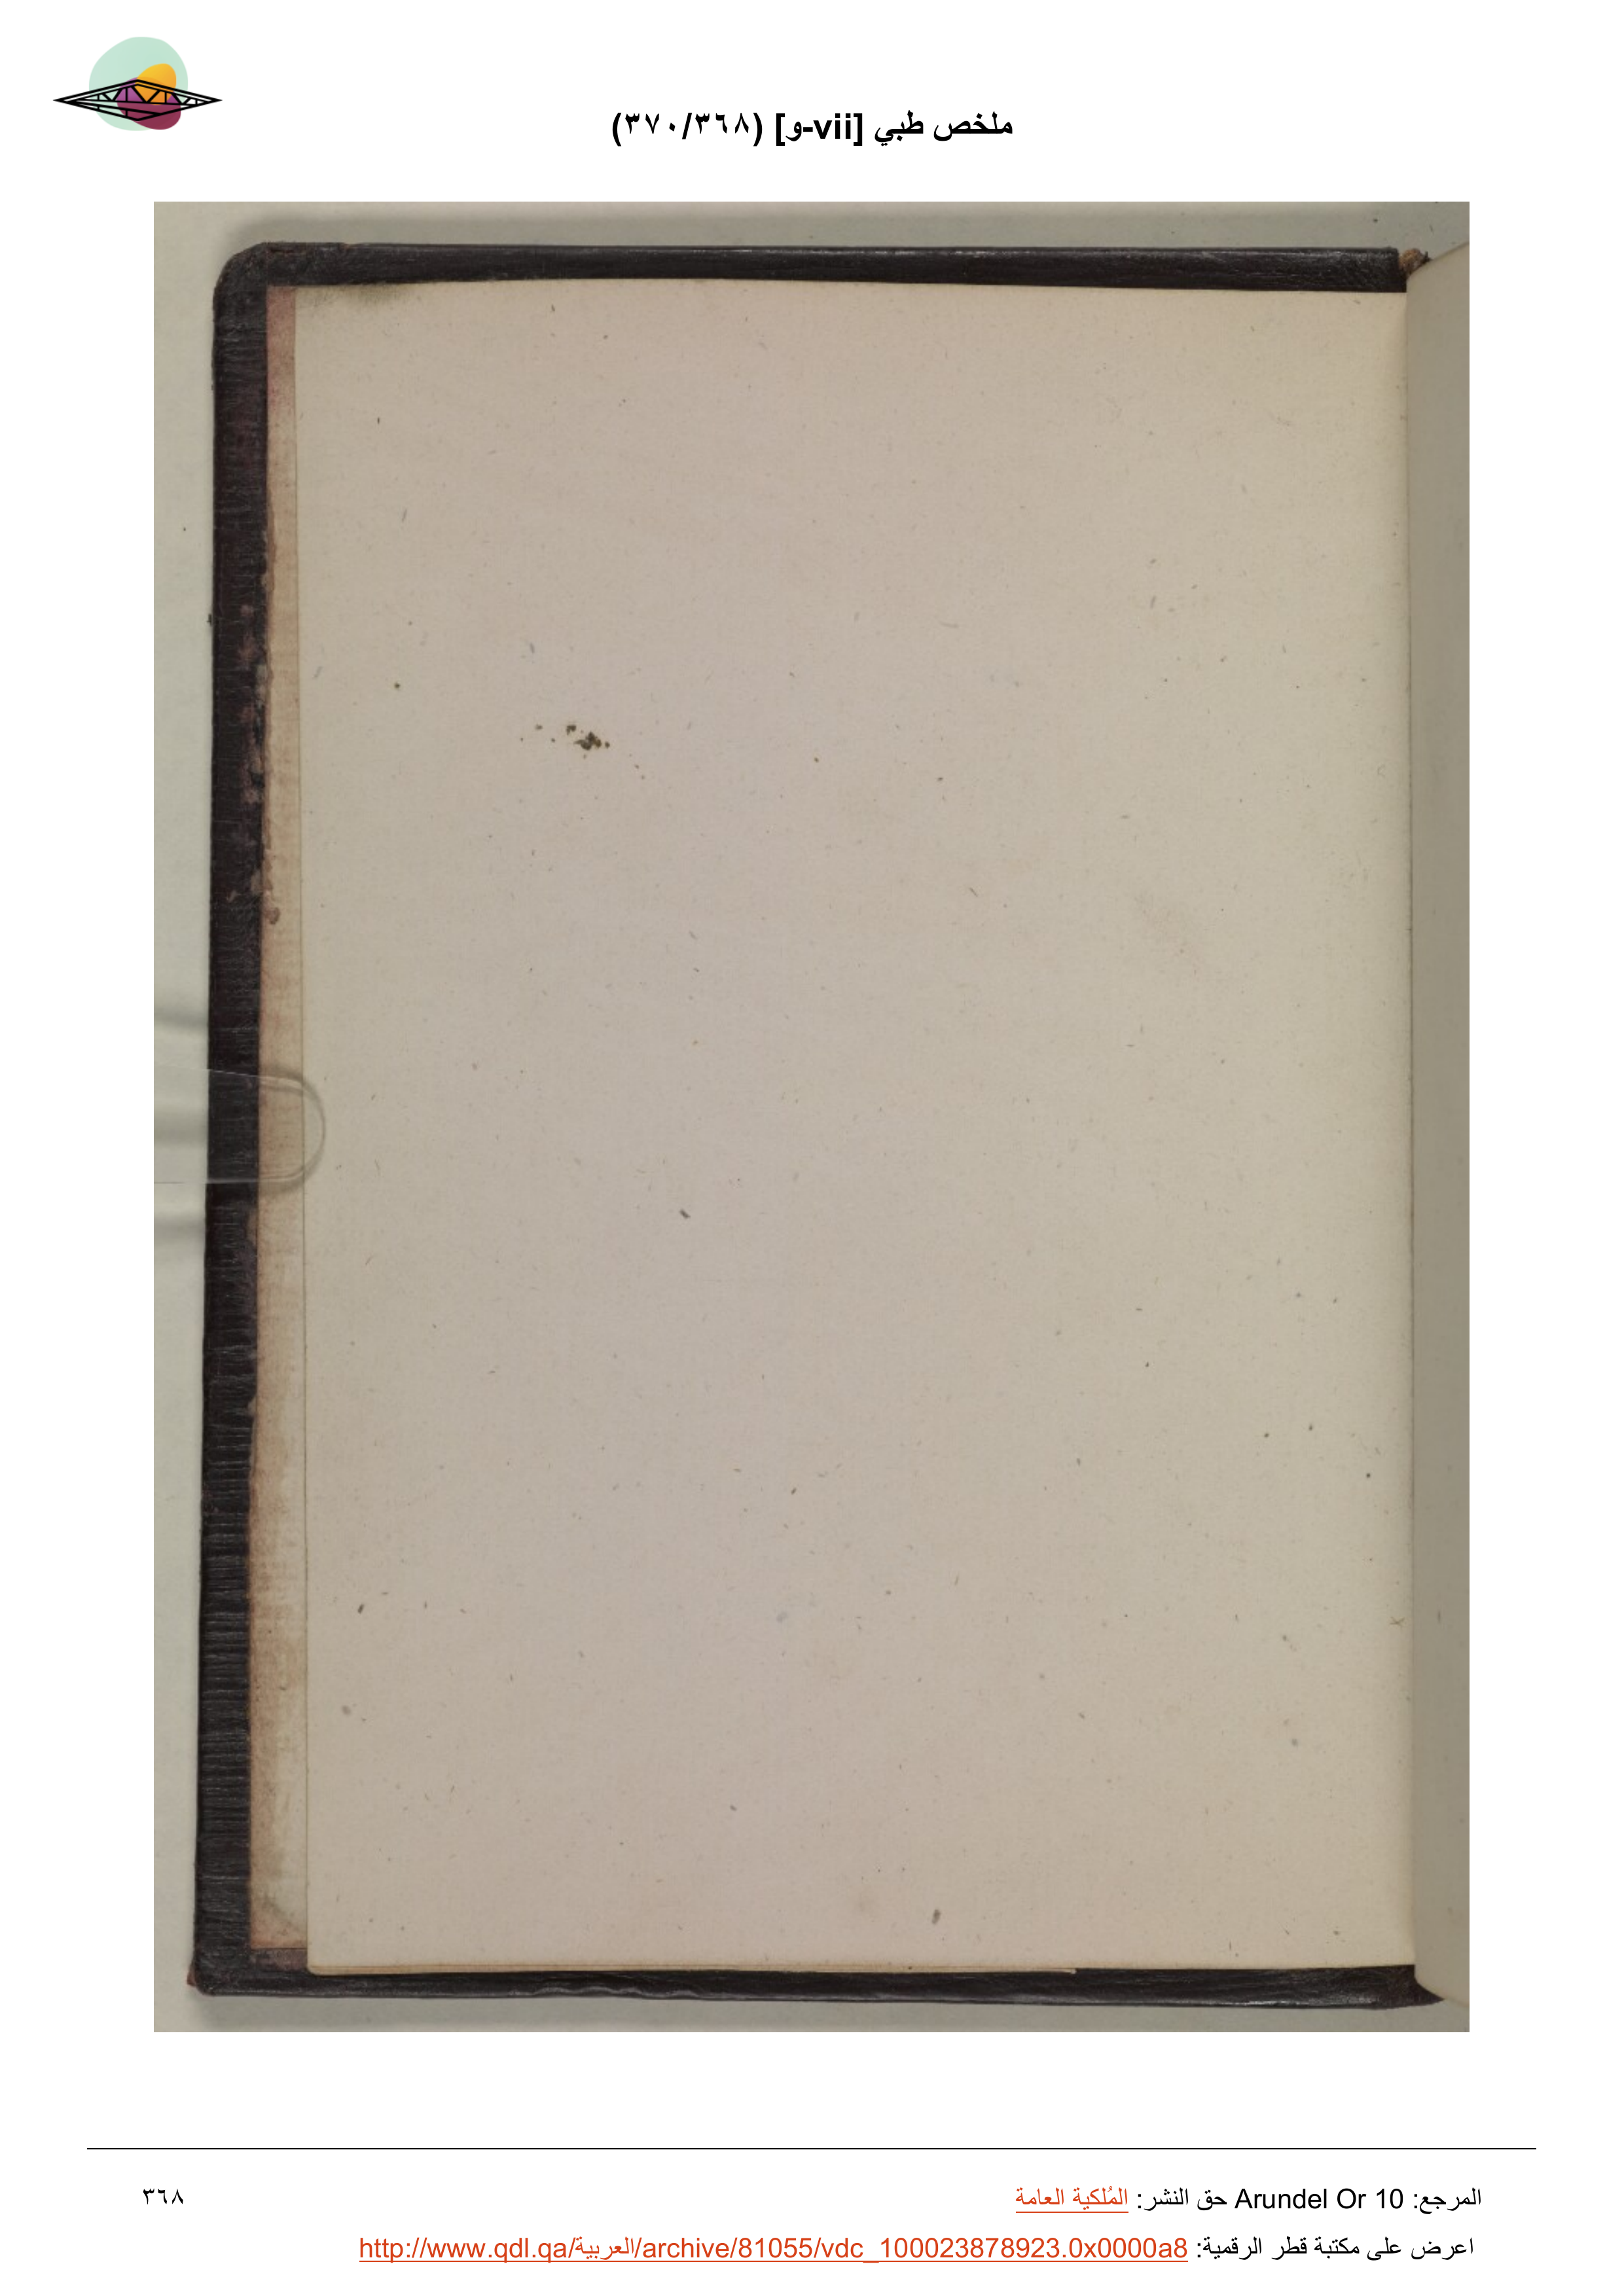 ملخص طبي [vii-و] (٣٦٨/٣٧٠)
المرجع: Arundel Or 10 حق النشر: المُلكية العامة
٣٦٨
اعرض على مكتبة قطر الرقمية: http://www.qdl.qa/العربية/archive/81055/vdc_100023878923.0x0000a8